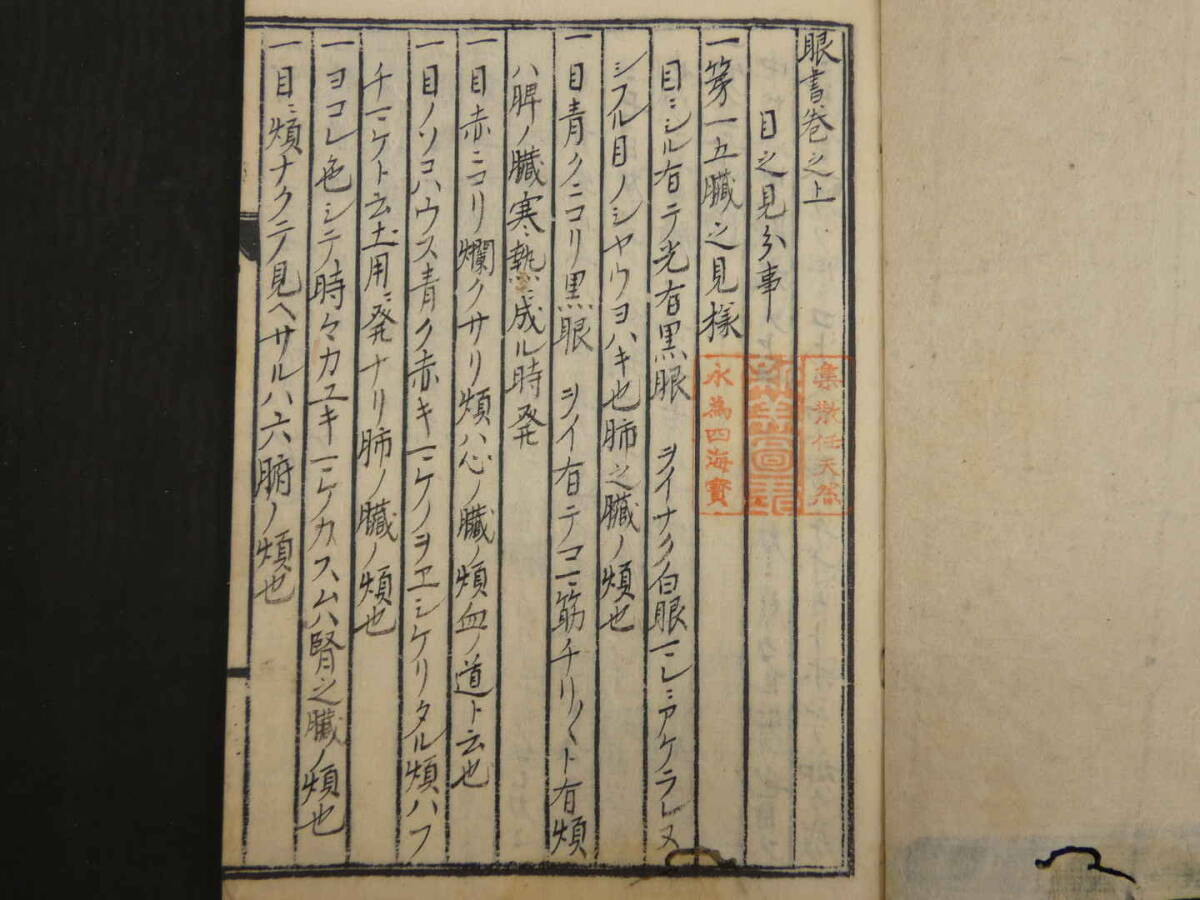 眼書卷之上
目之見分事
一第一五臓之見様
目ニシル有テ光有黒眼 ヲイナク白眼マレニアケラレヌ
シフル目ノシヤウヨハキ也肺之臓ノ煩也
一目青クニコリ黒眼 ヲイ有テコマニ筋チリ〱ト有煩
ハ脾ノ臓寒熱ニ成ル時発
一目赤ニコリ爛クサリ煩ハ心ノ臓ノ煩血ノ道ト云也
一目ノソコハウス青ク赤キマケノヲヱシケリタル煩ハフ
チマケト云土用ニ発ナリ肺ノ臓ノ煩也
一ヨコレ色シテ時々カユキマケノカスムハ腎之臓ノ煩也
一目ニ煩ナクテ見ヘサルハ六腑ノ煩也
集散任天然
永為四海寳